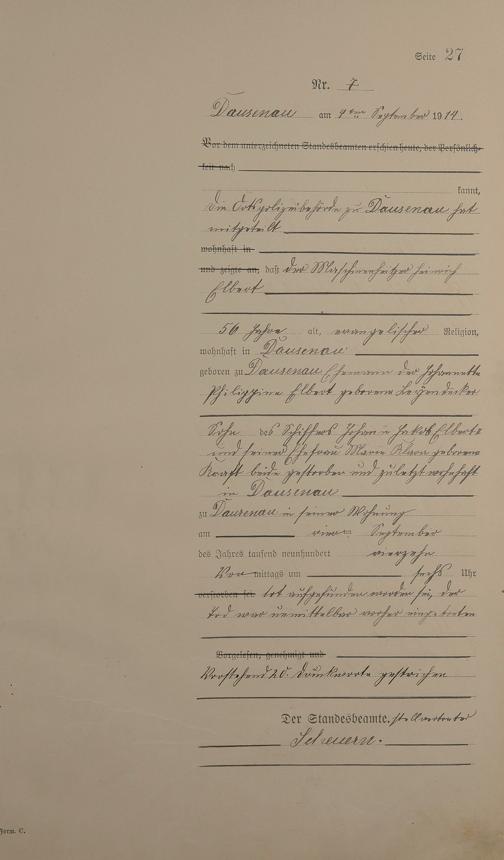 Seite 27
Nr. 7
Dausenau am 9ten September 1914.
Vor dem unterzeichneten Standesbeamten erschien heute, der Persönlich-
keit nach
kannt,
die Ortspolizeibehörde zu Dausenau hat
mitgeteilt
wohnhaft in
und zeigte an, daß der Maschinenheizer Heinrich
Elbert
56 Jahre alt, evangelischer Religion,
wohnhaft in Dausenau
geboren zu Dausenau Ehemann der Johannette
Philippine Elbert geborene
Sohn des Schiffers Johann Jakob Elbert
und seiner Ehefrau Marie geborene
Kraft beide gestorben und zuletzt wohnhaft
in Dausenau
zu Dausenau in seiner Wohnung
am September
des Jahres tausend neunhundert vierzehn
Vor mittags um sechs Uhr
verstorben sei. tot aufgefunden worden sei, der
Tod war unmittelbar vorher eingetreten
Vorgelesen, genehmigt und
Vorstehend 20. Druckworte gestrichen
Der Standesbeamte. stellvertreter
Scheuern.
Form. C.